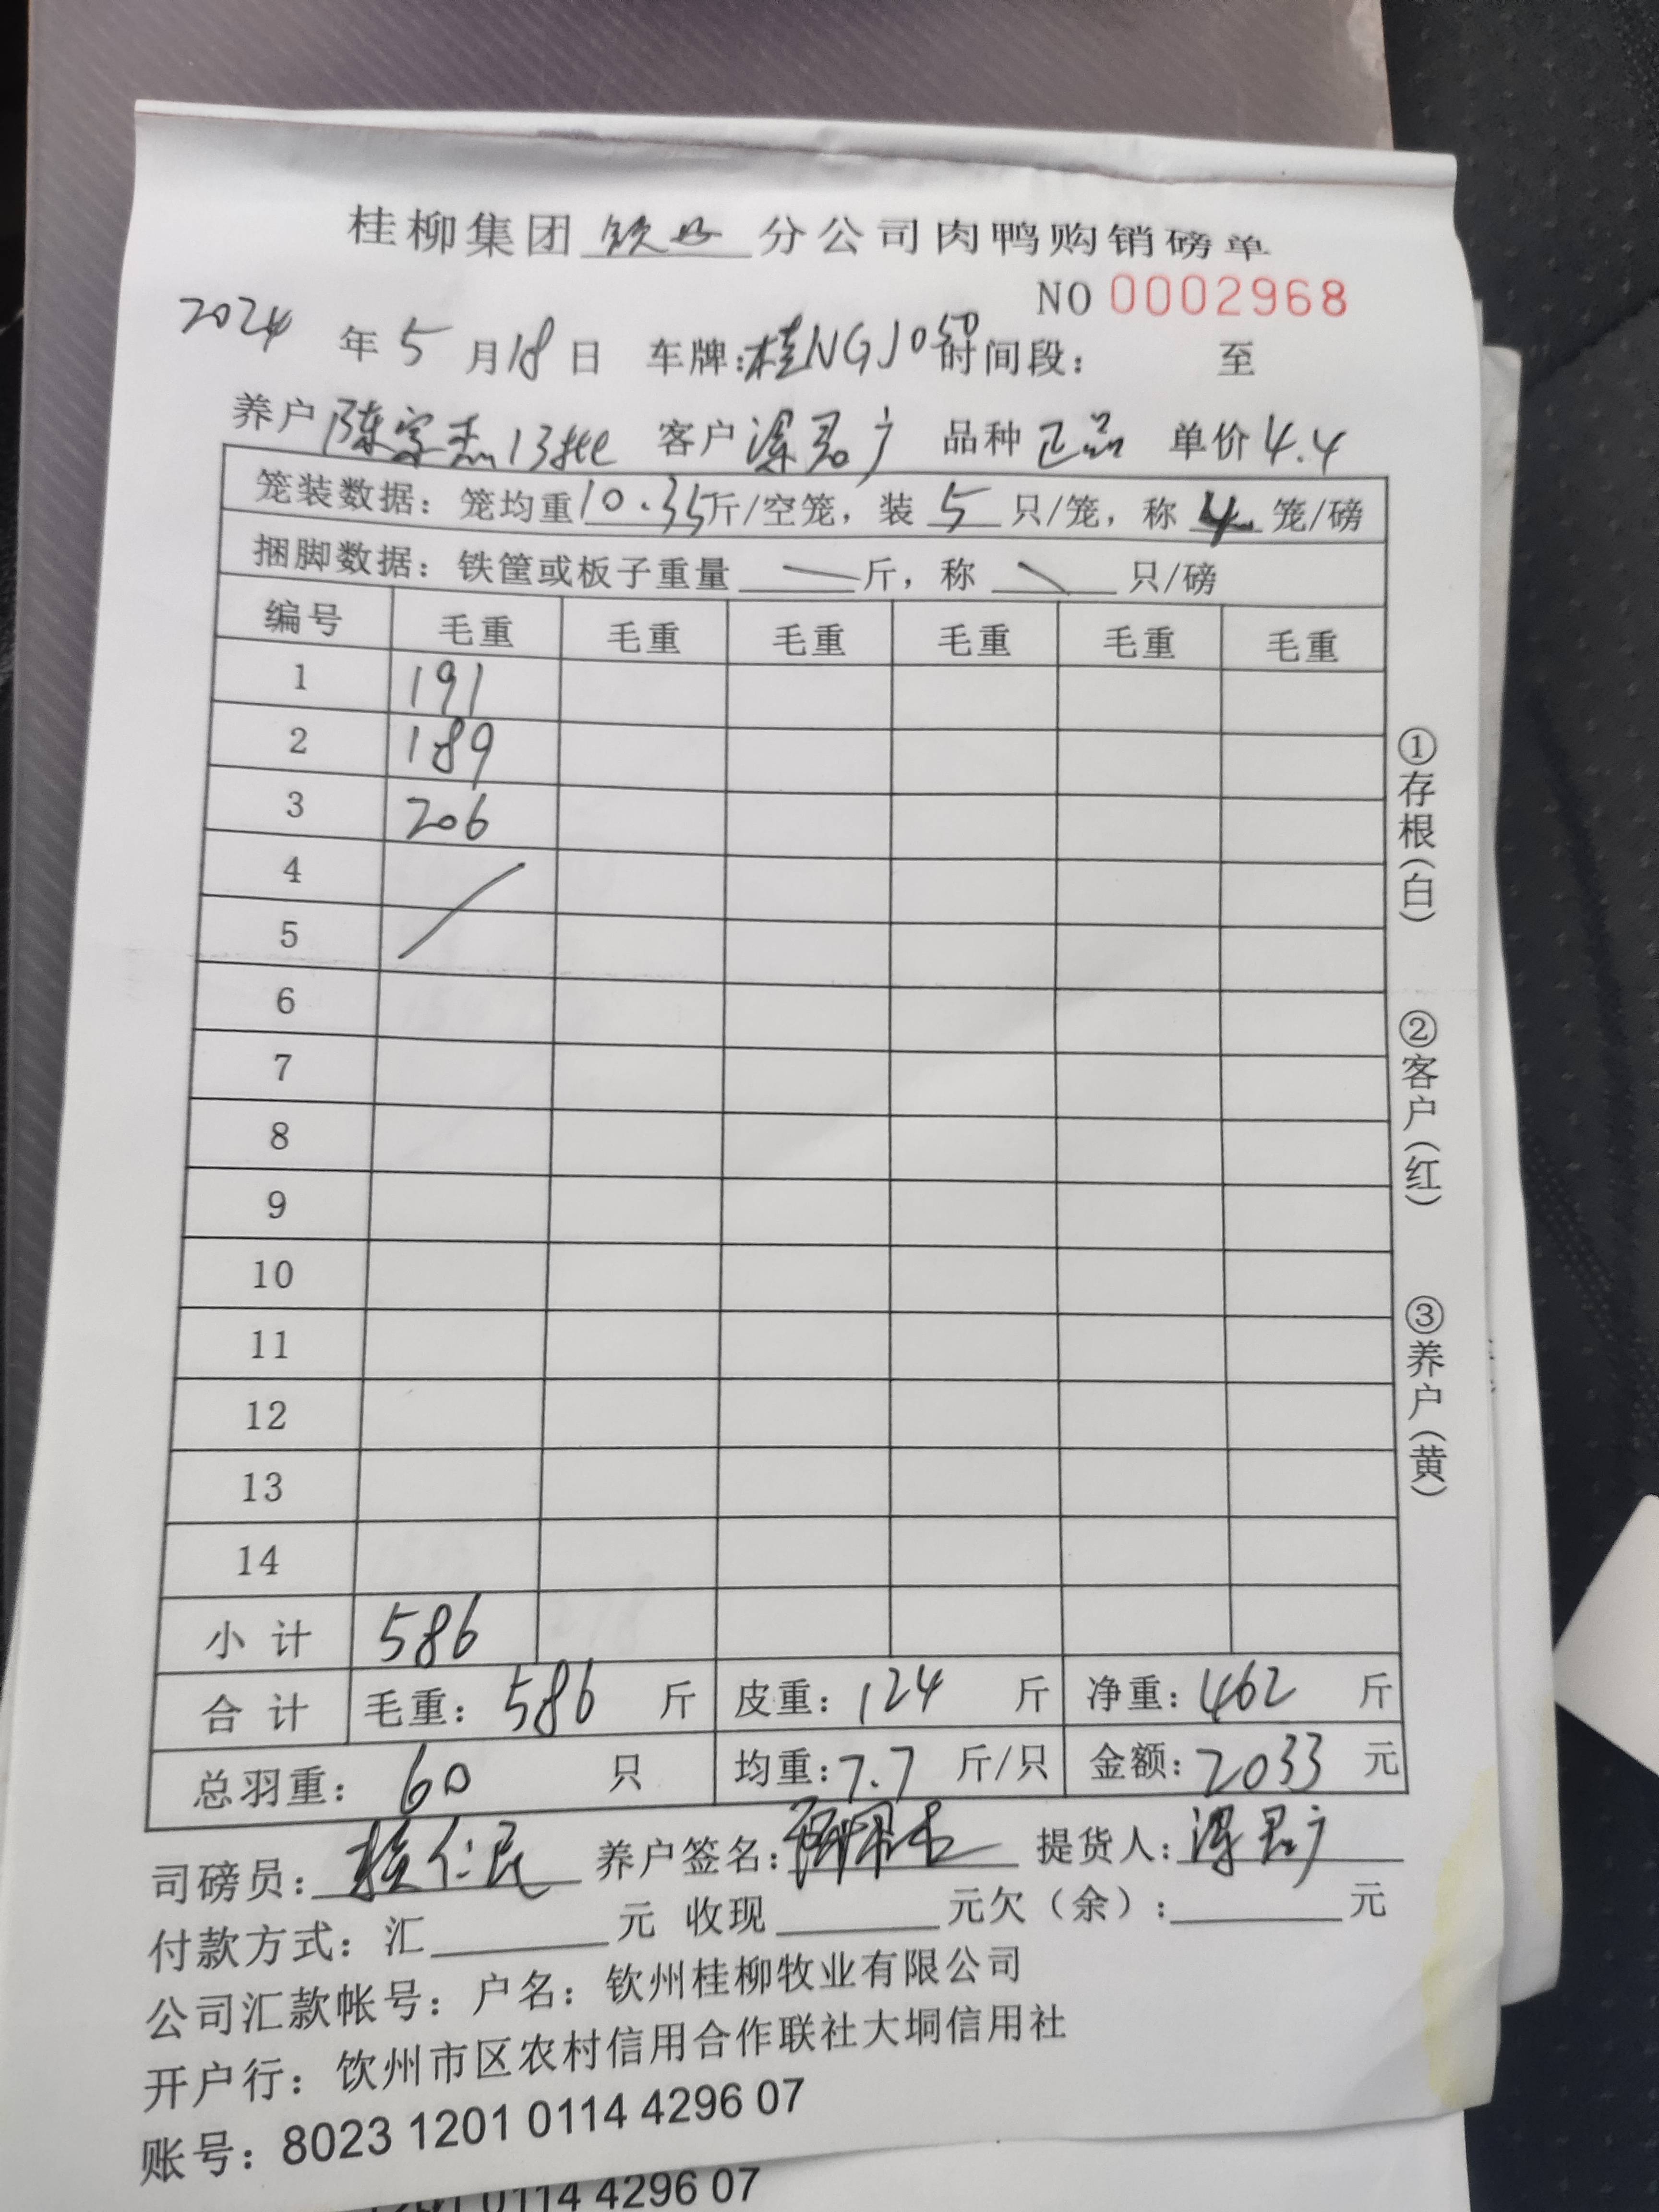 桂柳集团 钦州 分公司肉鸭购销磅单
NO 0002968
2024 年 5 月 18 日 车牌:桂NGJ050 时间段: 至
养户 陈 杰 13批 客户 梁君广 品种 正品 单价 4.4
笼装数据:笼均重10.35斤/空笼,装 5 只/笼,称 4 笼/磅
捆脚数据:铁筐或板子重量 斤,称 只/磅
编号 毛重 毛重 毛重 毛重 毛重 毛重
1 191
2 189
3 206
4
5
6
7
8
9
10
11
12
13
14
小 计 586
合 计 毛重: 586 斤 皮重: 124 斤 净重: 462 斤
总羽重: 60 只 均重: 7.7 斤/只 金额: 2033 元
司磅员: 仁民 养户签名: 提货人: 梁君广
付款方式:汇 元 收现 元欠(余): 元
公司汇款帐号:户名:钦州桂柳牧业有限公司
开户行:饮州市区农村信用合作联社大垌信用社
账号:8023 1201 0114 4296 07
①存根(白)
②客户(红)
③养户(黄)
1201 0114 4296 07